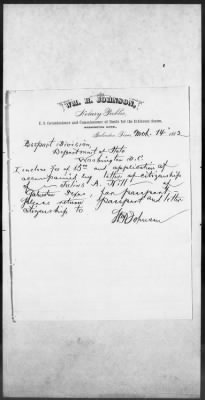 WM. H. JOHNSON,
Notary Public,
U. S. Commissioner and Commissioner of Deeds for the Different States,
Galveston, Texas, Mch. 14" 1882
Passport Division,
Department of State
Washington D.C.
I enclose fee of $5.00 and application of
accompanied by letter of citizenship
of Julius A. Hill of
Galveston Texas, for passport
please return passport and letter
citizenship to
WH Johnson